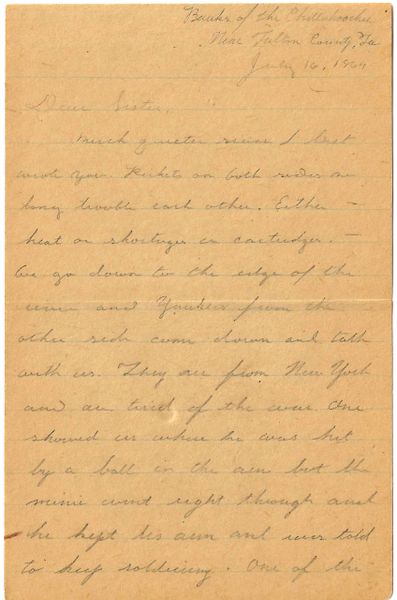 Banks of the Chattahoochee
Near Fulton County, Ga
July 16, 1864
Dear Sister,
Much quieter since I last
wrote you. Pickets on both sides
trouble each other. Either
heat or shortages in cartridges. —
We go down to the edge of the
river and Yankees from the
other side come down and talk
with us. They are from New York
and are tired of the war. One
showed us where he was hit
by a ball in the arm but the
minie went right through and
he kept his arm and was told
to keep soldiering. One of the